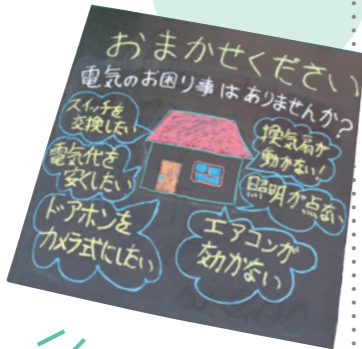 おまかせください
電気のお困り事はありませんか?
スイッチを
交換したい
電気代を
安くしたい
ドアホンを
カメラ式にしたい
換気扇が
動かない!
照明が点ない
エアコンが
効かない